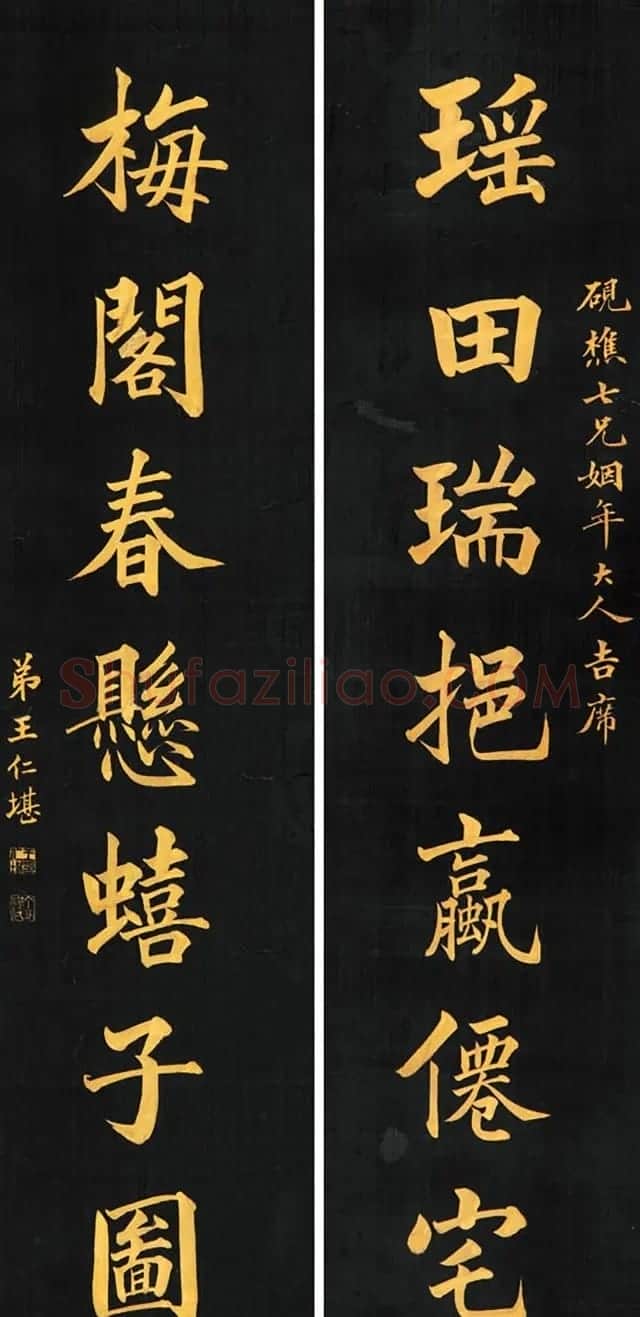 瑶田瑞挹蠃僊宅
硯樵七兄姻年大人吉席
梅閣春懸蟢子圖
弟王仁堪
Shufaziliao.COM